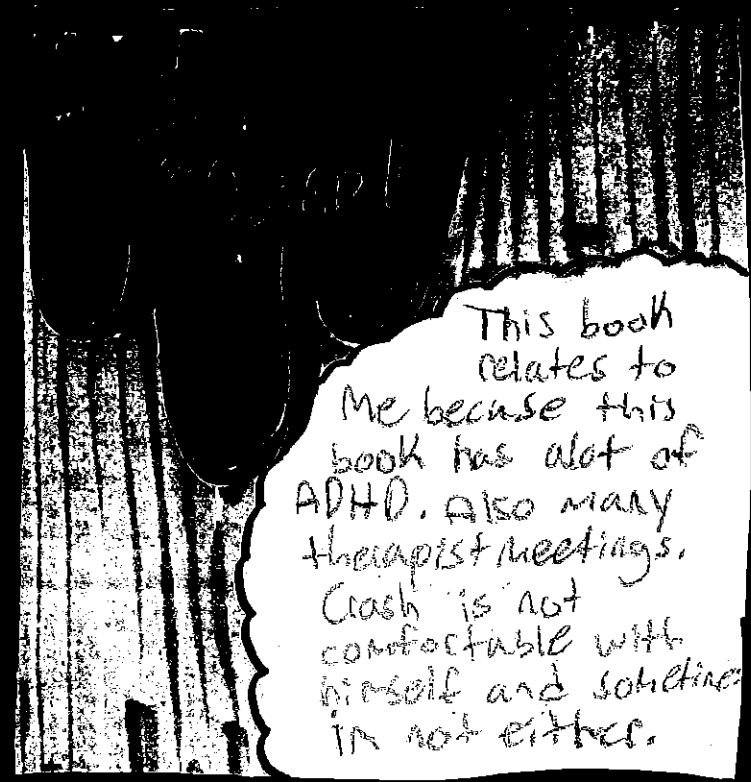 This book
relates to
Me becuse this
book has alot of
ADHD. Also many
therapist meetings.
Crash is not
comfortable with
himself and sometimes
im not either.